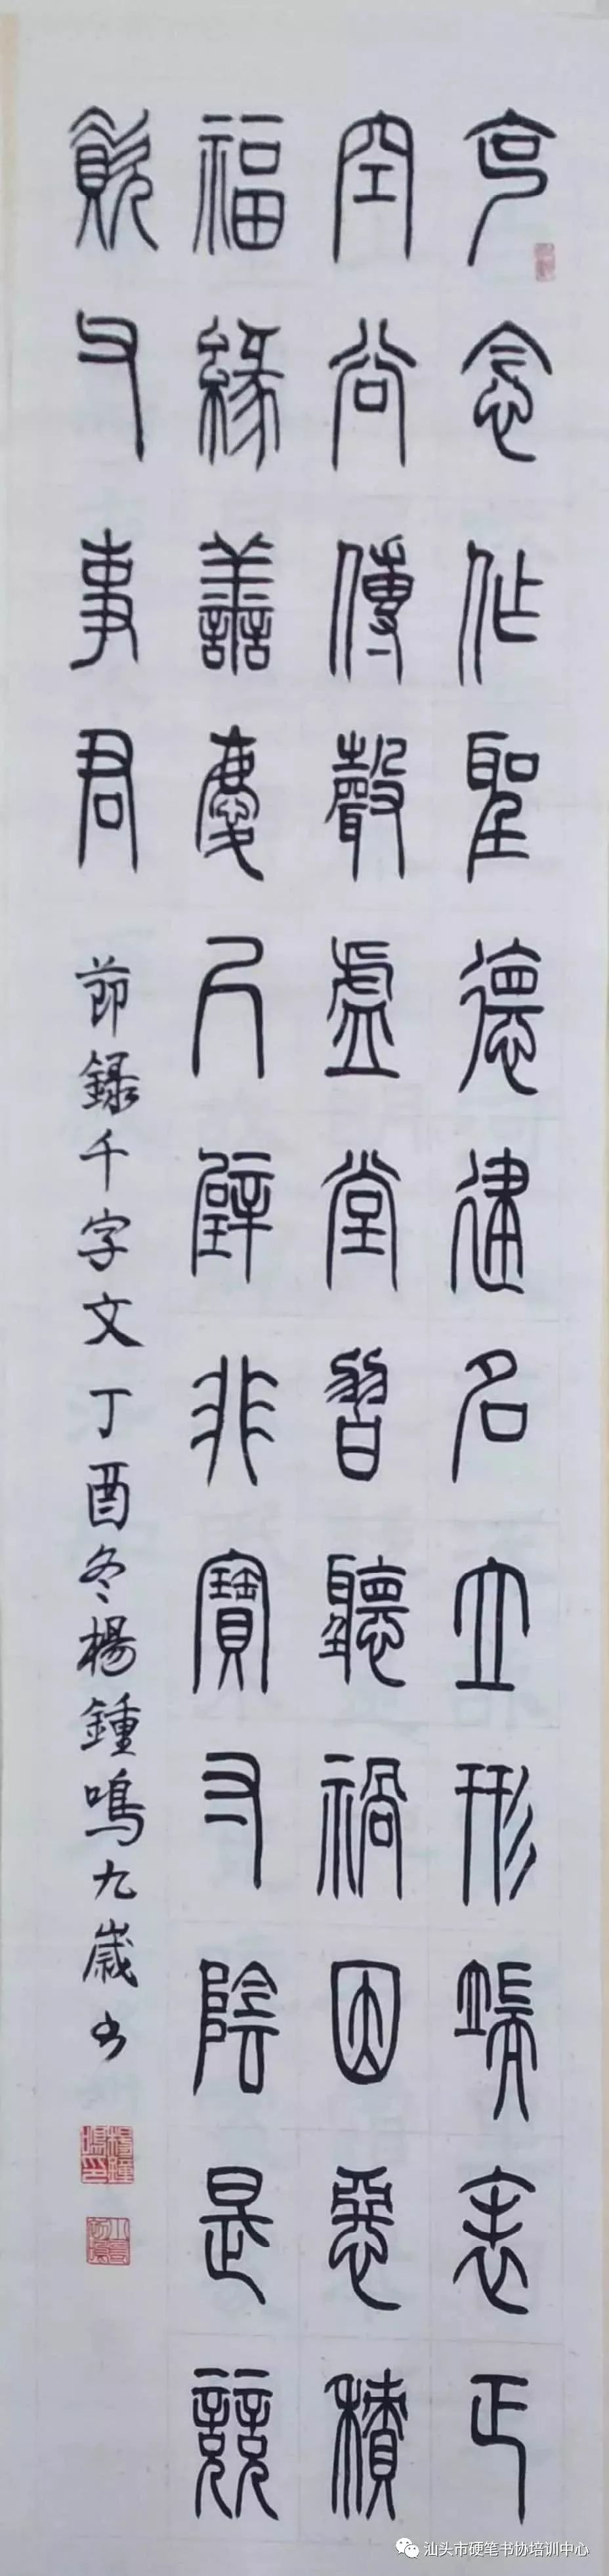 克念作聖德建名立形端表正
空谷傳聲虛堂習聽禍因惡積
福緣善慶尺璧非寶寸陰是競
資父事君
節錄千字文丁酉冬楊鍾鳴九歲书
楊鍾鳴印
汕头市硬笔书协培训中心